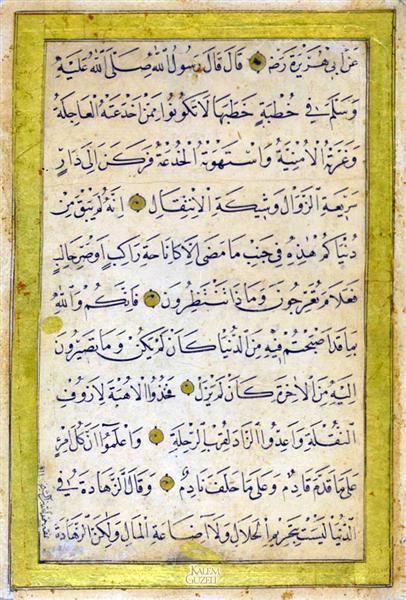 عَنْ اَبِي هُرَيْرَةَ رَضِ قَالَ قَالَ رَسُولُ اللّٰهِ صَلَّى اللّٰهُ عَلَيْهِ
وَسَلَّمَ فِي خُطْبَةٍ خَطَبَهَا لَا تَكُونُوا مِمَّنْ اخْدَعَتْهُ الْعَاجِلَةُ
وَغَرَّتْهُ الْاُمْنِيَّةُ وَاسْتَهْوَتْهُ الْخُدْعَةُ فَرَكَنَ اِلَى دَارٍ
سَرِيعَةِ الزَّوَالِ وَشِيكَةِ الْاِنْتِقَالِ اِنَّهُ لَمْ يَبْقَ مِنْ
دُنْيَاكُمْ هٰذِهِ فِي جَنْبِ مَا مَضَى اِلَّا كَاِنَاخَةِ رَاكِبٍ اَوْ صَرِّ حَالِبٍ
فَعَلَامَ تَعْرُجُونَ وَمَاذَا تَنْتَظِرُونَ فَاِنَّكُمْ وَاللّٰهِ
بِمَا قَدْ اَصْبَحْتُمْ فِيهِ مِنَ الدُّنْيَا كَاَنْ لَمْ يَكُنْ وَمَا تَصِيرُونَ
اِلَيْهِ مِنَ الْاٰخِرَةِ كَاَنْ لَمْ يَزَلْ فَخُذُوا الْاُهْبَةَ لِاُزُوفِ
النُّقْلَةِ وَاَعِدُّوا الزَّادَ لِقُرْبِ الرِّحْلَةِ وَاعْلَمُوا اَنَّ كُلَّ امْرِئٍ
عَلَى مَا قَدَّمَ قَادِمٌ وَعَلَى مَا خَلَّفَ نَادِمٌ وَقَالَ الزَّهَادَةُ فِي
الدُّنْيَا لَيْسَتْ بِتَحْرِيمِ الْحَلَالِ وَلَا اِضَاعَةِ الْمَالِ وَلٰكِنَّ الزَّهَادَةَ
KALEM
GÜZELİ